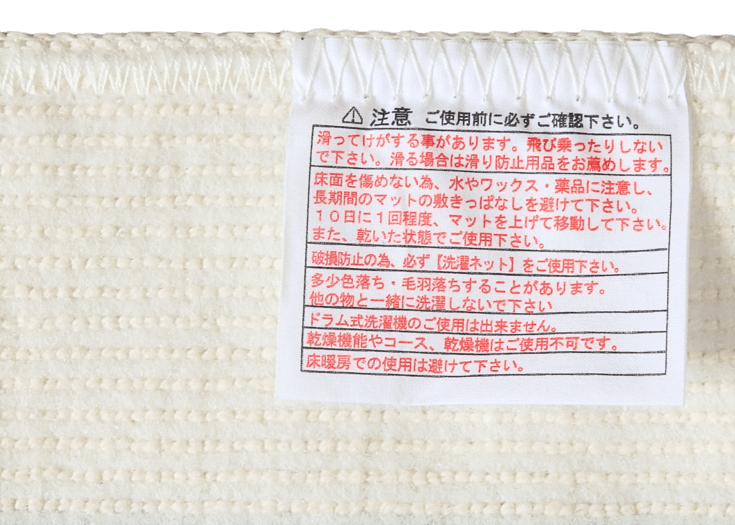 ⚠ 注意 ご使用前に必ずご確認下さい。
滑ってけがする事があります。飛び乗ったりしない
で下さい。滑る場合は滑り防止用品をお薦めします。
床面を傷めない為、水やワックス・薬品に注意し、
長期間のマットの敷きっぱなしを避けて下さい。
10日に1回程度、マットを上げて移動して下さい。
また、乾いた状態でご使用下さい。
破損防止の為、必ず【洗濯ネット】をご使用下さい。
多少色落ち・毛羽落ちすることがあります。
他の物と一緒に洗濯しないで下さい
ドラム式洗濯機のご使用は出来ません。
乾燥機能やコース、乾燥機はご使用不可です。
床暖房での使用は避けて下さい。